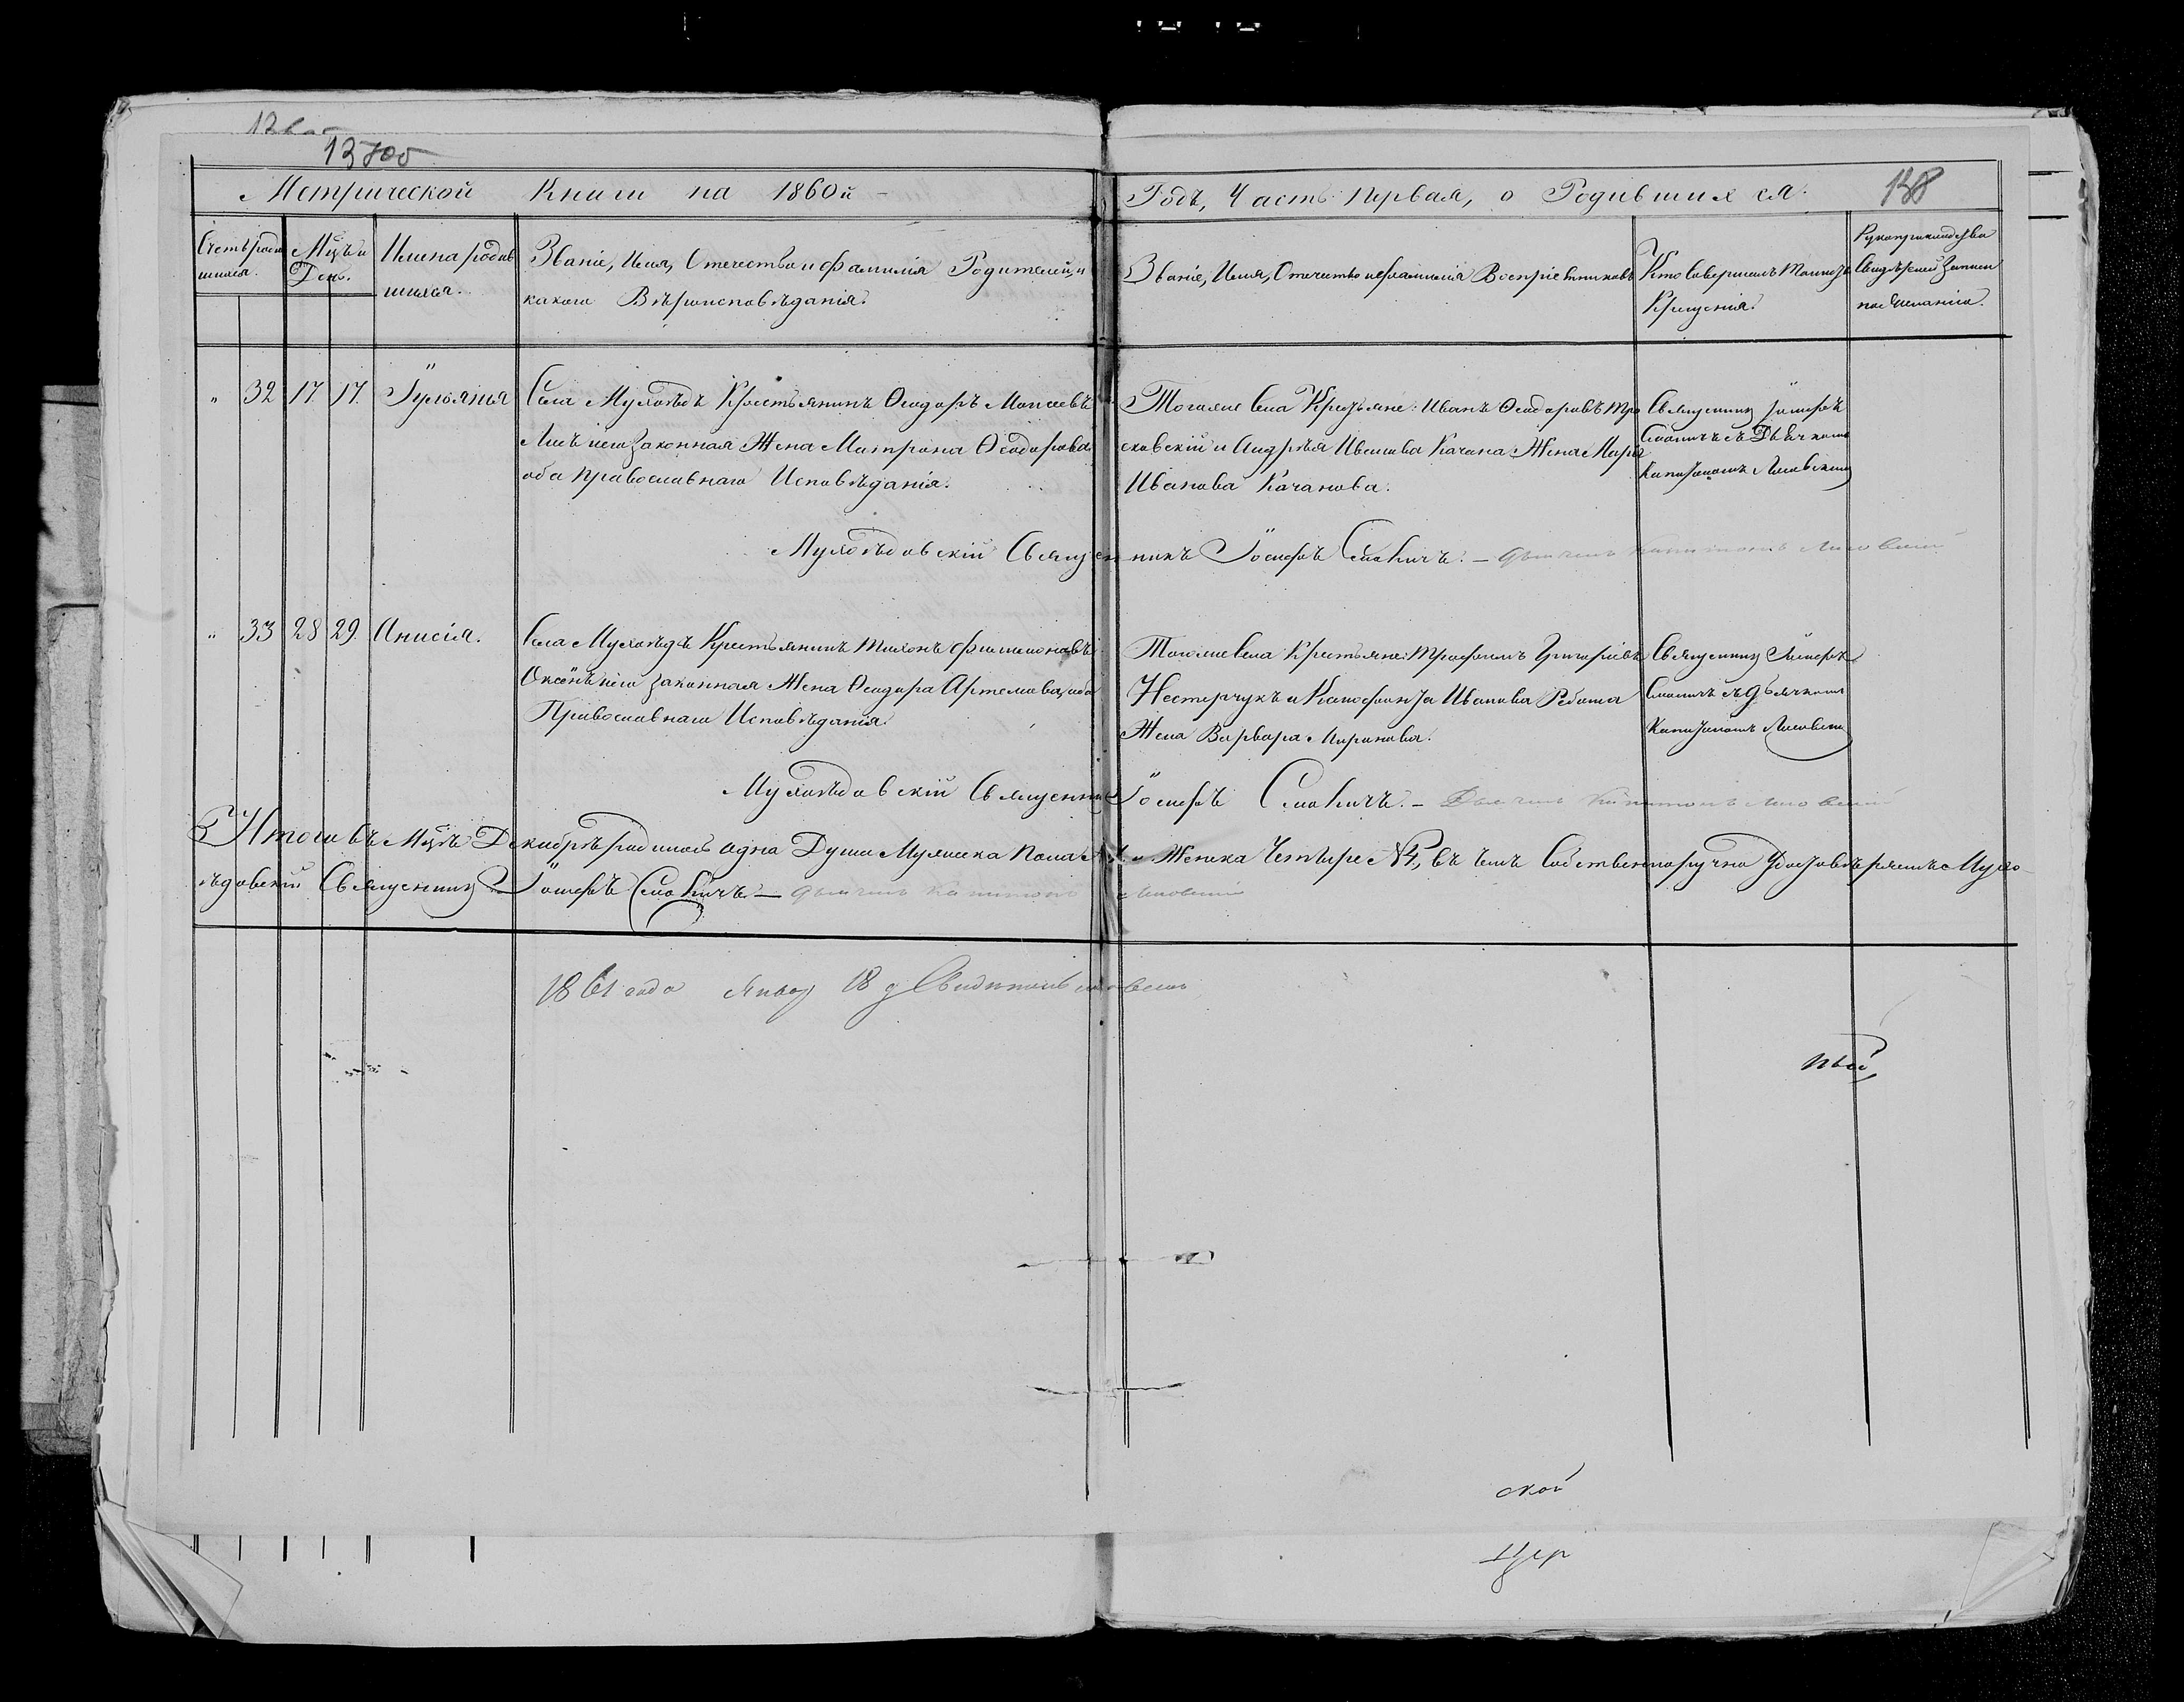 13 об
Метрической Книги на 1860й Годъ, Часть Первая, о Родившихся. 138
Счетъ родив
шихся.
Мцъ и
День.
Имена родив
шихся.
Званіе, Имя, Отечество и фамилія Родителей, и
какого Вѣроисповѣданія.
Званіе, Имя, Отечество и фамилія Воспріемниковъ
Кто Совершалъ Таинство
Крещенія.
Рукоприкладство
Свидѣтелей Записи
по Желанію.
" 32 17 17 Іульянія
Села Мухоѣдъ Крестьянинъ Ѳеодоръ Моисеевъ
и его Законная Жена Матрона Ѳеодорова
оба Православнаго Исповѣданія.
Тогоже Села Крестьяне: Иванъ Ѳеодоровъ Тро
сковскій и Андрея Иванова Качана Жена Марія
Иванова Качанова.
Священникъ Іосифъ
Смоличъ съ Дьячкомъ
Капитономъ Лисовскимъ
Мухоѣдовскій Священникъ Іосифъ Смоличъ. — Дьячекъ Капитонъ Лисовскій
" 33 28 29 Анисія.
Села Мухоѣдъ Крестьянинъ Тихонъ Филимоновъ
его Законная Жена Ѳеодора Артемова, оба
Православнаго Исповѣданія.
Тогоже Села Крестьяне: Трофимъ Григоріевъ
Нестерчукъ и Ксенофонта Иванова Ребата
Жена Варвара Миронова.
Священникъ Іосифъ
Смоличъ съ Дьячкомъ
Капитономъ Лисовскимъ
Мухоѣдовскій Священникъ Іосифъ Смоличъ. — Дьячекъ Капитонъ Лисовскій
Итого въ Мцѣ Декабрѣ родилось одна Душа Мужеска Пола и Женска Четыре №4, въ чемъ Собственноручно Удостовѣряемъ Мухо-
ѣдовскій Священникъ Іосифъ Смоличъ — Дьячекъ Капитонъ Лисовскій
1861 года Январ 18 д Свидетельствовалъ
ный
ской
Цер